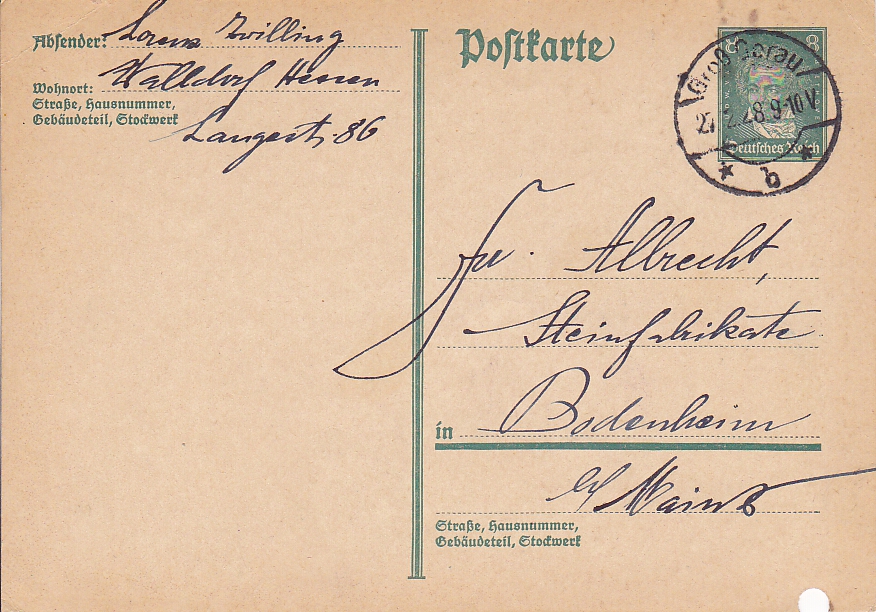 Absender: Lorenz Zwilling
Wohnort: Walldorf Hessen
Straße, Hausnummer,
Gebäudeteil, Stockwerk
Langestr. 86
Postkarte
8 8
Groß Gerau
2.28.9-10V
Deutsches Reich
b
Fa. Albrecht,
Steinfabrikate
in Bodenheim
b/ Mainz
Straße, Hausnummer,
Gebäudeteil, Stockwerk